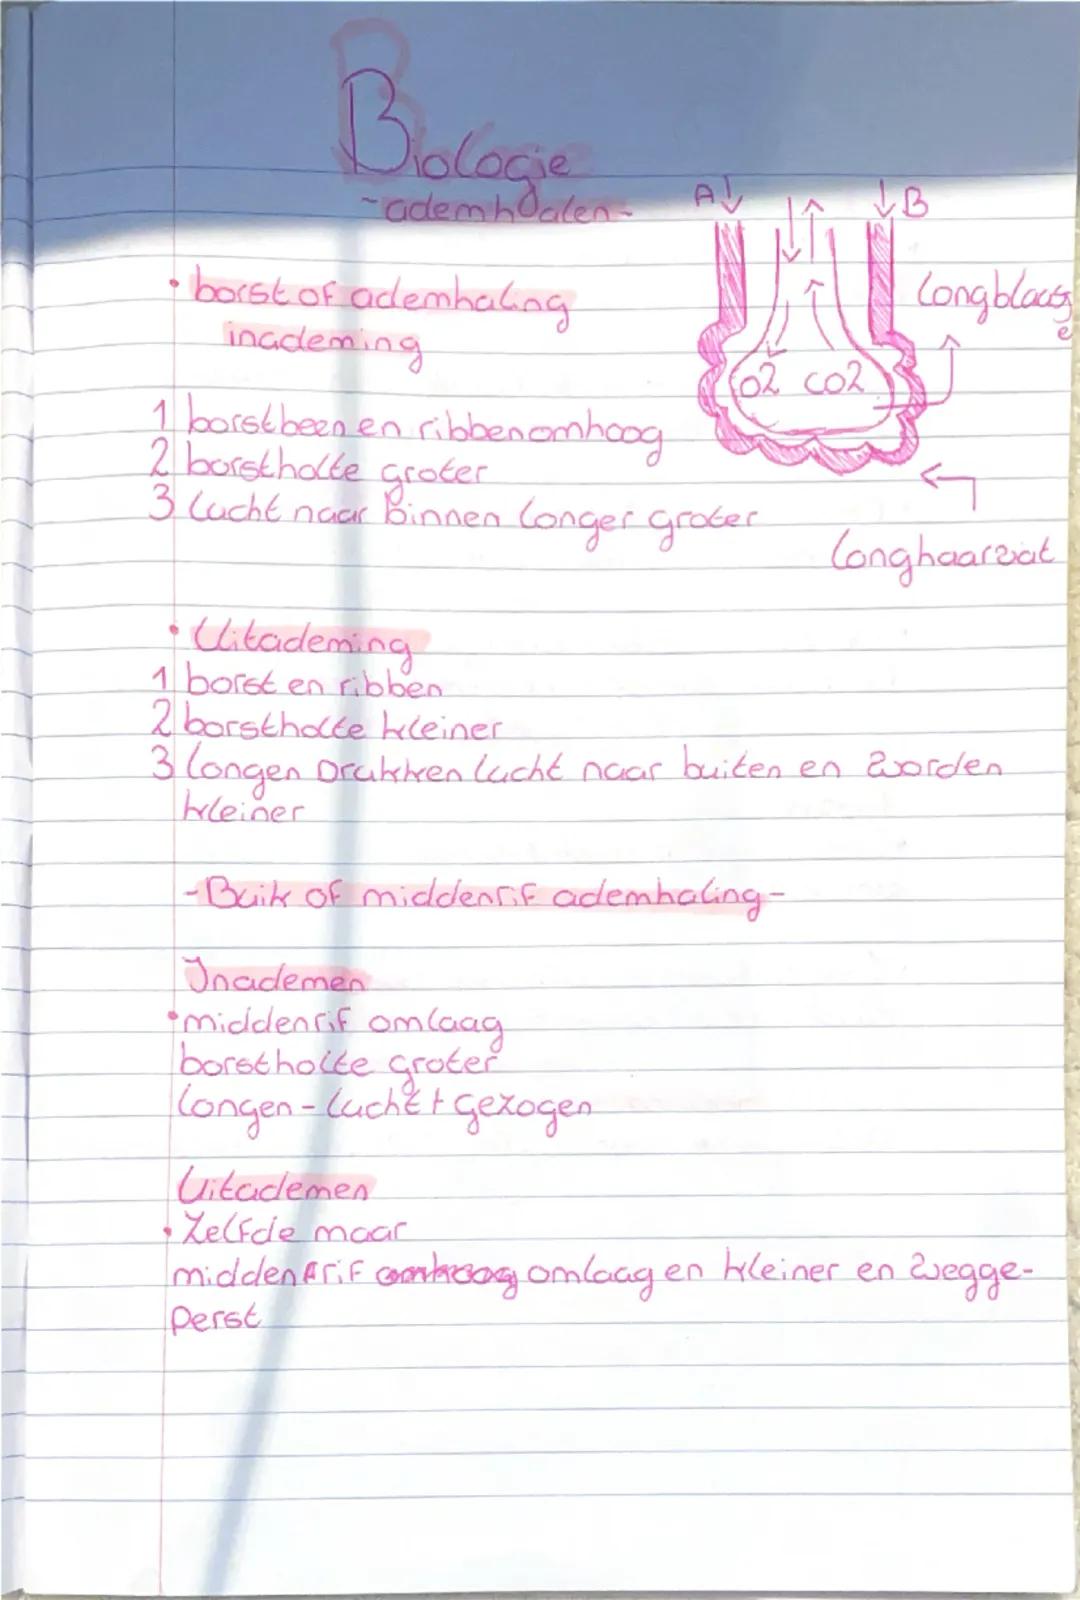 Biologie
- ademhalen -
A B
• borst of ademhaling
inademing
longblaasje
O2 CO2
1 borstbeen en ribben omhoog
2 borstholte groter
3 lucht naar binnen longer groter
longhaarvat
• Uitademing
1 borst en ribben
2 borstholte kleiner
3 longen Drukken lucht naar buiten en worden
kleiner
- Buik of middenrif ademhaling -
Inademen
• middenrif omlaag
borstholte groter
longen - lucht + gezogen
Uitademen
• Zelfde maar
middenrif omhoog omlaag en kleiner en wegge-
perst